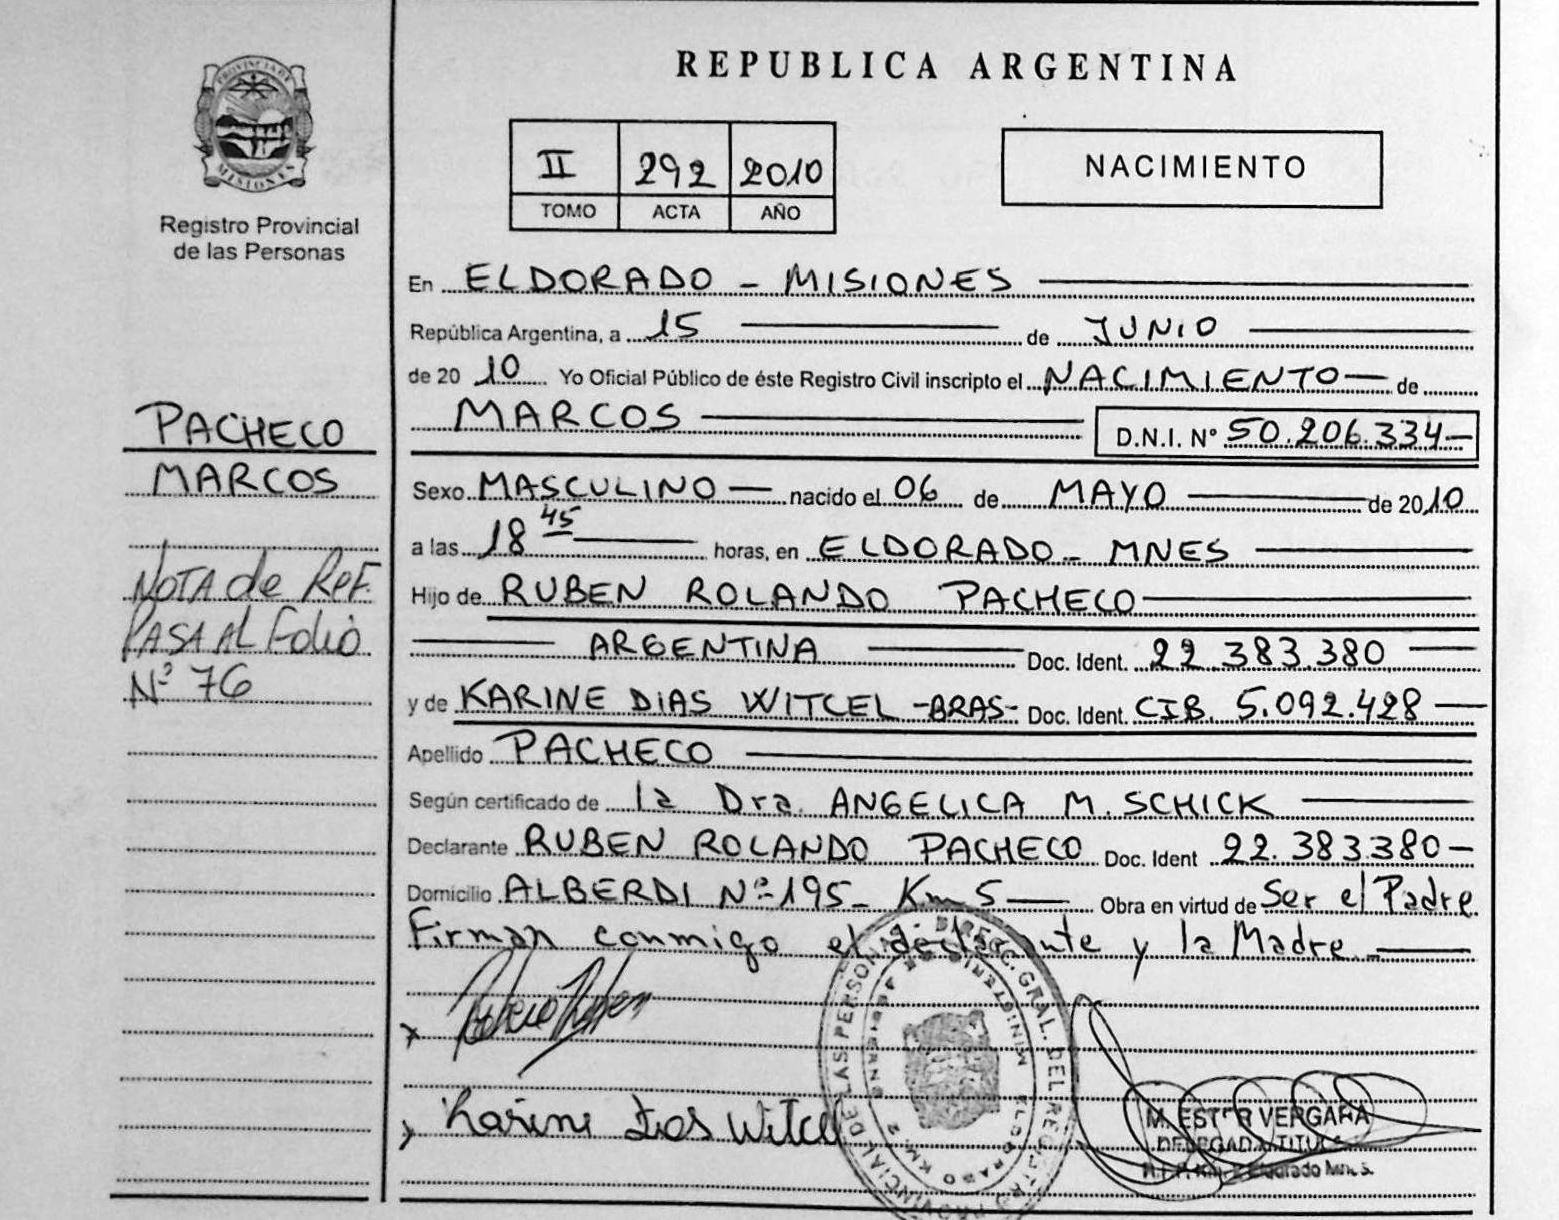 PROVINCIA DE
MISIONES
Registro Provincial
de las Personas
PACHECO
MARCOS
NOTA de REF.
PASA AL Folio
Nº 76
REPUBLICA ARGENTINA
II 292 2010
TOMO ACTA AÑO
NACIMIENTO
En ELDORADO - MISIONES
República Argentina, a 15 de JUNIO
de 20 10 Yo Oficial Público de éste Registro Civil inscripto el NACIMIENTO de
MARCOS D.N.I. Nº 50.206.334
Sexo MASCULINO nacido el 06 de MAYO de 2010
a las 18 45 horas, en ELDORADO - MNES
Hijo de RUBEN ROLANDO PACHECO
ARGENTINA Doc. Ident. 22.383.380
y de KARINE DIAS WITCEL -BRAS- Doc. Ident. CIB. 5.092.428
Apellido PACHECO
Según certificado de la Dra. ANGELICA M. SCHICK
Declarante RUBEN ROLANDO PACHECO Doc. Ident 22.383.380
Domicilio ALBERDI Nº 195 - Km 5 Obra en virtud de Ser el Padre
Firman conmigo el declarante y la Madre.
Karine Dias Witcel
DIREC. GRAL. DEL REGISTRO PROVINCIAL DE LAS PERSONAS
ELDORADO KM. 2
M. ESTER VERGARA
DELEGADA TITULAR
Eldorado Mnes.